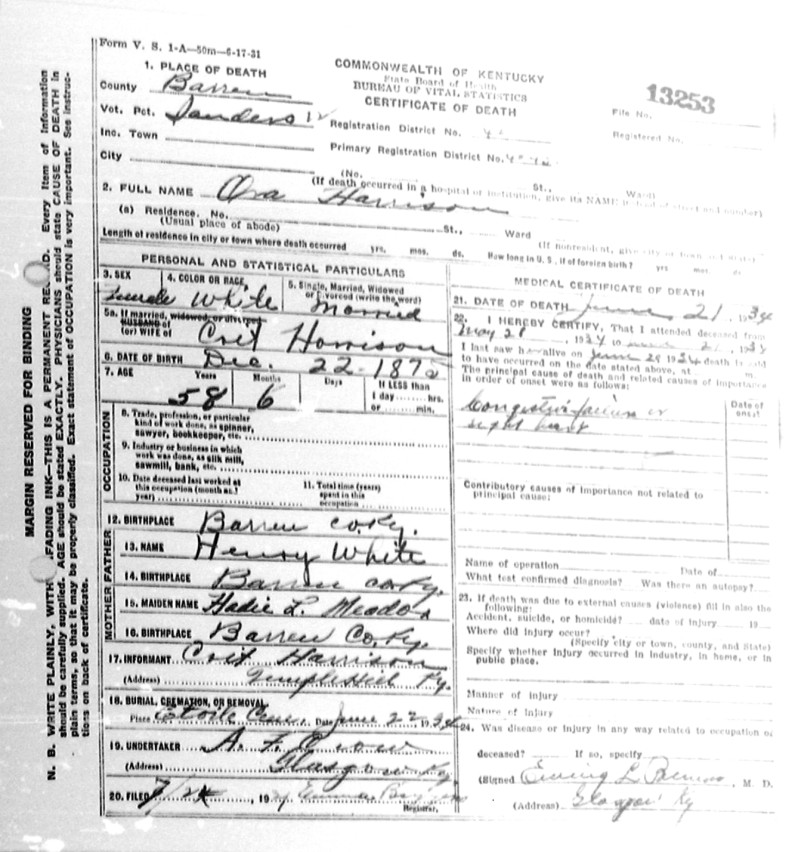 MARGIN RESERVED FOR BINDING
N. B. WRITE PLAINLY, WITH FADING INK—THIS IS A PERMANENT RECORD. Every item of information
should be carefully supplied. AGE should be stated EXACTLY. PHYSICIANS should state CAUSE OF DEATH in
plain terms, so that it may be properly classified. Exact statement of OCCUPATION is very important. See instruc-
tions on back of certificate.
Form V. S. 1-A—50m—6-17-31
COMMONWEALTH OF KENTUCKY
State Board of Health
BUREAU OF VITAL STATISTICS
CERTIFICATE OF DEATH
13253
File No.
Registered No.
1. PLACE OF DEATH
County Barren
Vot. Pct. Sanders
Registration District No.
Inc. Town
Primary Registration District No.
City
(No. St., Ward)
(If death occurred in a hospital or institution, give its NAME instead of street and number)
2. FULL NAME Ora Harrison
(a) Residence. No. St., Ward
(Usual place of abode)
(If nonresident, give city or town and state)
Length of residence in city or town where death occurred yrs. mos. ds. How long in U. S., if of foreign birth? yrs. mos. ds.
PERSONAL AND STATISTICAL PARTICULARS
3. SEX Female
4. COLOR OR RACE White
5. Single, Married, Widowed or Divorced (write the word) Married
5a. If married, widowed, or divorced
HUSBAND of
(or) WIFE of Cret Harrison
6. DATE OF BIRTH Dec. 22-187
7. AGE Years 58 Months 6 Days If LESS than
1 day hrs.
or min.
OCCUPATION
8. Trade, profession, or particular
kind of work done, as spinner,
sawyer, bookkeeper, etc.
9. Industry or business in which
work was done, as silk mill,
sawmill, bank, etc.
10. Date deceased last worked at
this occupation (month and
year)
11. Total time (years)
spent in this
occupation
12. BIRTHPLACE Barren Co. Ky.
FATHER
13. NAME Henry White
14. BIRTHPLACE Barren Co Ky.
MOTHER
15. MAIDEN NAME Hadie L. Meador
16. BIRTHPLACE Barren Co. Ky.
17. INFORMANT Cret Harrison
(Address) Temple Hill Ky.
18. BURIAL, CREMATION, OR REMOVAL
Place Etoile Cem. Date June 22 1934
19. UNDERTAKER A. F. Crow
(Address) Glasgow Ky.
20. FILED 7/24, 19
Registrar.
MEDICAL CERTIFICATE OF DEATH
21. DATE OF DEATH June 21, 1934
22. I HEREBY CERTIFY, That I attended deceased from
May 28, 1934 to 21, 1934
I last saw h alive on June 1934 death is said
to have occurred on the date stated above, at m.
The principal cause of death and related causes of importance
in order of onset were as follows:
Date of onset
Congestive failure
right heart
Contributory causes of importance not related to
principal cause:
Name of operation Date of
What test confirmed diagnosis? Was there an autopsy?
23. If death was due to external causes (violence) fill in also the
following:
Accident, suicide, or homicide? date of injury 19
Where did injury occur?
(Specify city or town, county, and State)
Specify whether injury occurred in industry, in home, or in
public place.
Manner of injury
Nature of injury
24. Was disease or injury in any way related to occupation of
deceased? If so, specify
(Signed , M. D.
(Address) Glasgow Ky